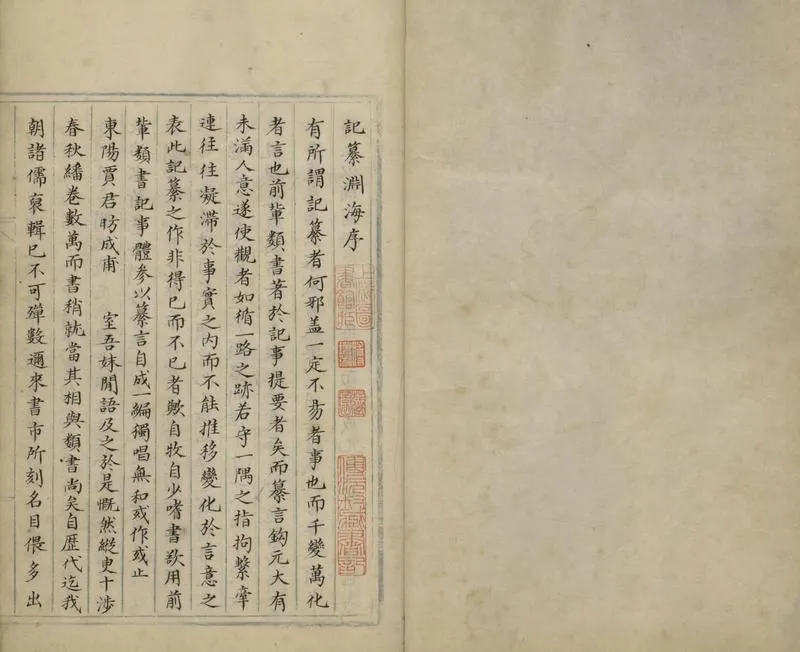 記纂淵海序
有所謂記纂者何邪盖一定不易者事也而千變萬化
者言也前輩類書著於記事提要者矣而纂言鈎元大有
未滿人意遂使觀者如循一路之跡若守一隅之指拘繫牽
連往往凝滯於事實之内而不能推移變化於言意之
表此記纂之作非得已而不已者歟自牧自少嗜書欲用前
輩類書記事體參以纂言自成一編獨唱無和或作或止
東陽賈君昉成甫 室吾妹閒語及之於是慨然縱更十涉
春秋繙卷數萬而書稍就當其相與類書尚矣自歴代迄我
朝諸儒裒輯已不可殫數邇來書市所刻名目偎多出